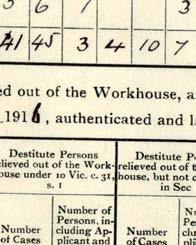 3 6 1 3
41 45 3 4 10 7
ed out of the Workhouse, a
1916, authenticated and l
Destitute Persons
relieved out of the Work-
house under 10 Vic. c. 31,
s. 1
Destitute P
relieved out of t
house, but not
in Sec
Number
of Cases
Number of
Persons, in-
cluding Ap-
plicant and
Number
of Cases